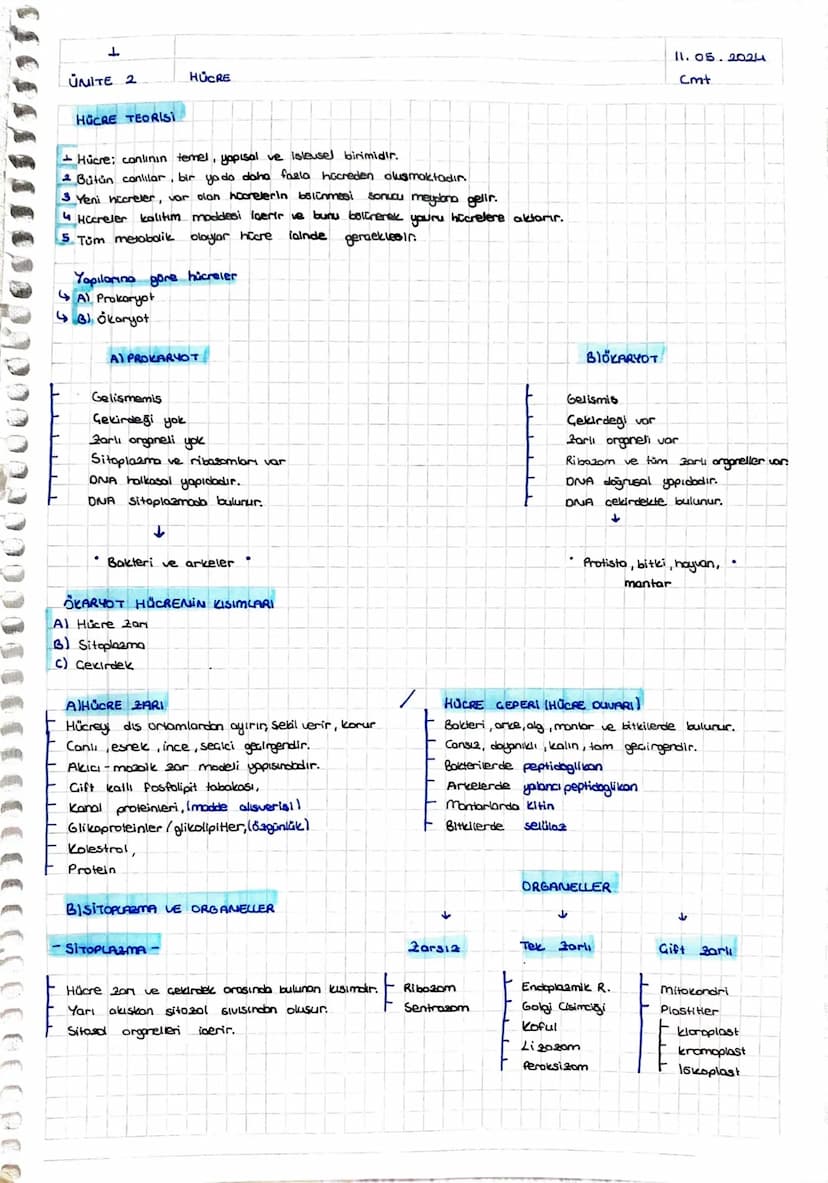 1
11.05.2024
ÜNİTE 2
HÜCRE
Cmt
HÜCRE TEORİSİ
1 Hücre; canlının temel, yapısal ve işlevsel birimidir.
2 Bütün canlılar, bir ya da daha fazla hücreden oluşmaktadır.
3 Yeni hücreler, var olan hücrelerin bölünmesi sonucu meydana gelir.
4 Hücreler kalıtım maddesi içerir ve bunu bölünerek yavru hücrelere aktarır.
5 Tüm metabolik olaylar hücre içinde gerçekleşir.
Yapılarına göre hücreler
↳ A) Prokaryot
↳ B) Ökaryot
A) PROKARYOT
Gelişmemiş
Çekirdeği yok
Zarlı organeli yok
Sitoplazma ve ribozomları var
DNA halkasal yapıdadır.
DNA sitoplazmada bulunur.
↓
• Bakteri ve arkeler •
B) ÖKARYOT
Gelişmiş
Çekirdeği var
Zarlı organeli var
Ribozom ve tüm zarlı organeller var.
DNA doğrusal yapıdadır.
DNA çekirdekte bulunur.
↓
• Protista, bitki, hayvan, •
mantar
ÖKARYOT HÜCRENİN KISIMLARI
A) Hücre Zarı
B) Sitoplazma
C) Çekirdek
A) HÜCRE ZARI
Hücreyi dış ortamlardan ayırır, şekil verir, korur
Canlı, esnek, ince, seçici geçirgendir.
Akıcı-mozaik zar modeli yapısındadır.
Çift katlı fosfolipit tabakası,
Kanal proteinleri, (madde alışverişi)
Glikoproteinler / glikolipitler, (özgünlük)
Kolestrol,
Protein
HÜCRE ÇEPERİ (HÜCRE DUVARI)
Bakteri, arke, alg, mantar ve bitkilerde bulunur.
Cansız, dayanıklı, kalın, tam geçirgendir.
Bakterilerde peptidoglikan
Arkelerde yalancı peptidoglikan
Mantarlarda kitin
Bitkilerde selüloz
B) SİTOPLAZMA VE ORGANELLER
- SİTOPLAZMA -
Hücre zarı ve çekirdek arasında bulunan kısımdır.
Yarı akışkan sitozol sıvısından oluşur.
Sitozol organelleri içerir.
ORGANELLER
↓ ↓ ↓
Zarsız
Ribozom
Sentrozom
Tek Zarlı
Endoplazmik R.
Golgi Cisimciği
Koful
Lizozom
Peroksizom
Çift Zarlı
Mitokondri
Plastitler
kloroplast
kromoplast
lökoplast